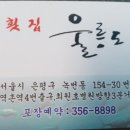 횟집 울릉도
서울시 은평구 녹번동 154-30번
역촌역4번출구,
포장예약: 356-8898